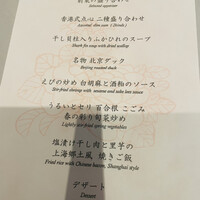 前菜の盛り合わせ
Assorted appetizer
香港式点心 二種盛り合わせ
Assorted dim sum ( 2 kinds )
干し貝柱入りふかひれのスープ
Shark fin soup with dried scallop
名物 北京ダック
Beijing roasted duck
えびの炒め 白胡麻と酒粕のソース
Stir-fried shrimp with sesame and sake lees sauce
うるいとセリ 百合根 こごみ
春の彩り旬菜炒め
Lightly stir-fried spring vegetables
塩漬け干し肉と里芋の
上海郷土風 焼きご飯
Fried rice with Chinese bacon, Shanghai style
デザート
Dessert